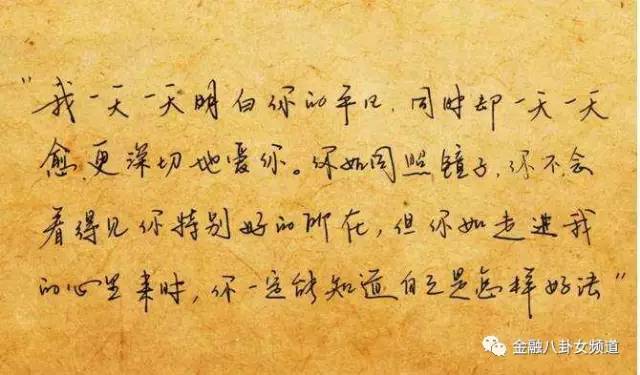 "我一天一天明白你的平凡,同时却一天一天
愈更深切地爱你。你如同照镜子,你不会
看得见你特别好的所在,但你如走进我
的心里来时,你一定能知道自己是怎样好法"
金融八卦女频道